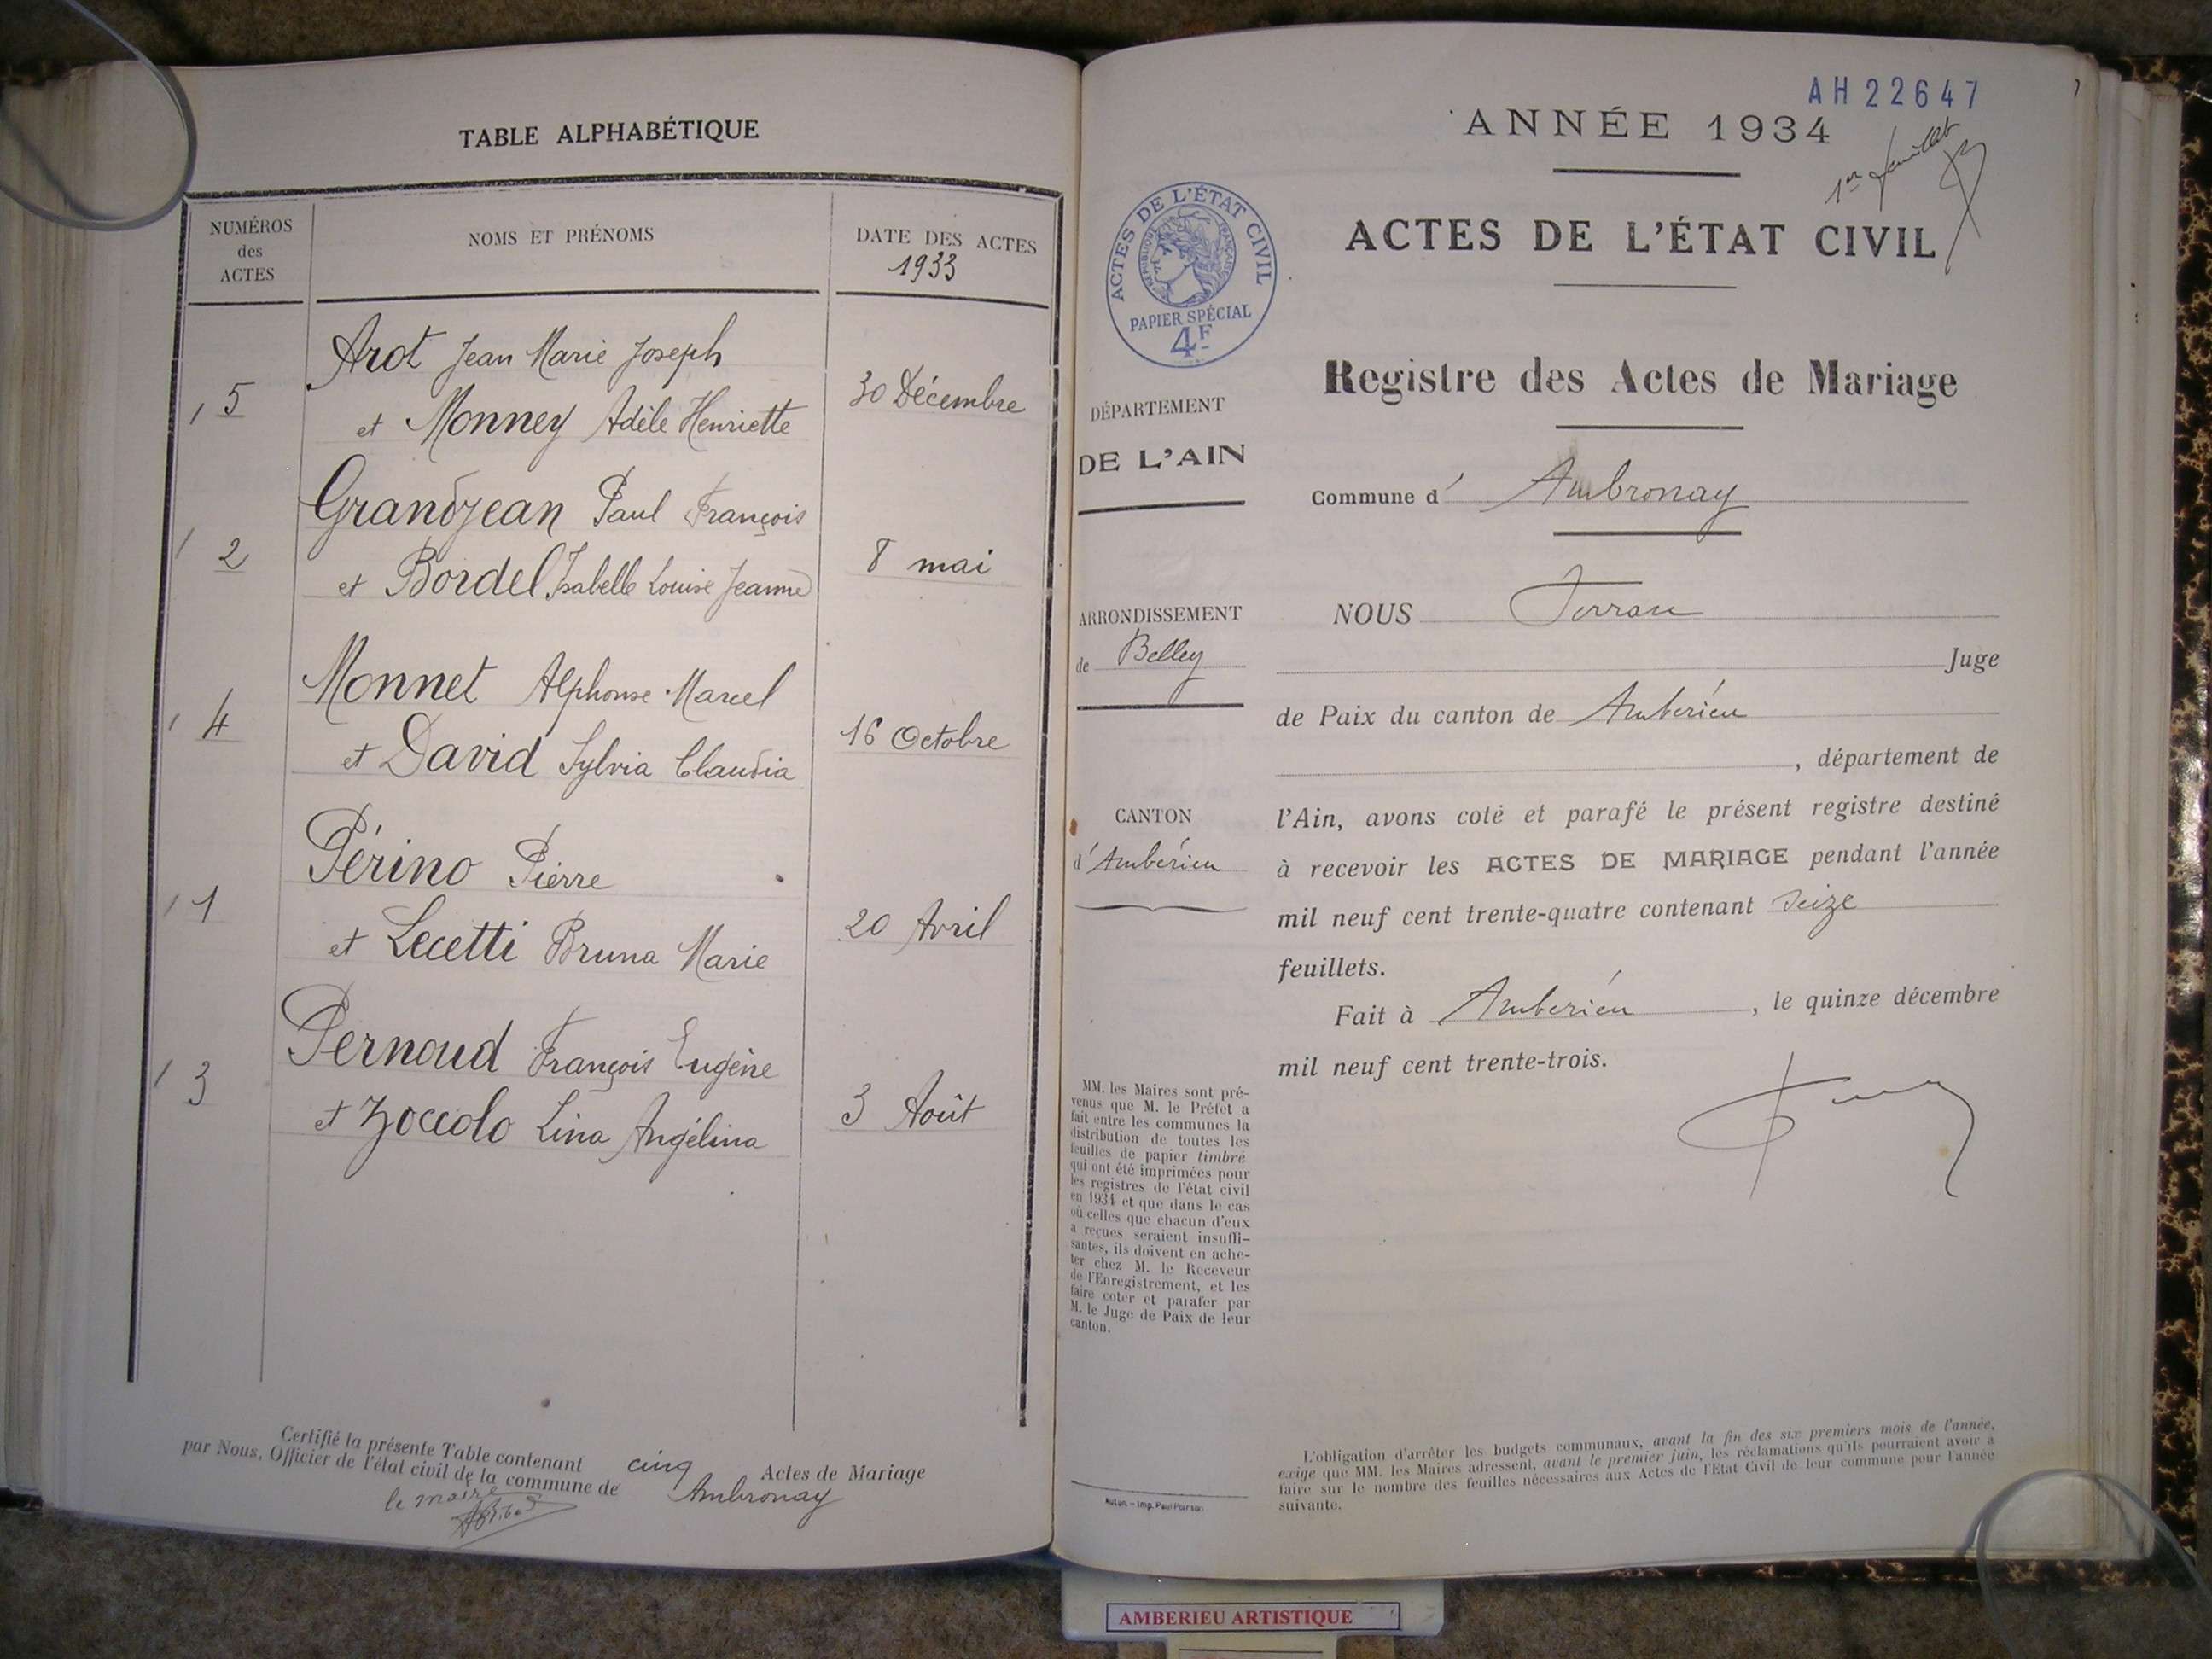 TABLE ALPHABÉTIQUE
NUMÉROS
des
ACTES
NOMS ET PRÉNOMS
DATE DES ACTES
1933
Arot Jean Marie Joseph
5
et Monney Adèle Henriette
30 Décembre
Grandjean Paul François
2
et Bordel Isabelle Louise Jeanne
8 mai
Monnet Alphonse Marcel
4
et David Sylvia Claudia
16 Octobre
Périno Pierre
1
et Lecetti Bruna Marie
20 Avril
Pernoud François Eugène
3
et Zoccolo Lina Angélina
3 Août
Certifié la présente Table contenant cinq Actes de Mariage
par Nous, Officier de l'état civil de la commune de Ambronay
le maire
AH22647
ANNÉE 1934
1er feuillet
ACTES DE L'ÉTAT CIVIL
ACTES DE L'ÉTAT CIVIL
RÉPUBLIQUE FRANÇAISE
PAPIER SPÉCIAL
4F
Registre des Actes de Mariage
DÉPARTEMENT
DE L'AIN
Commune d' Ambronay
ARRONDISSEMENT
de Belley
CANTON
d'Ambérieu
NOUS
Juge
de Paix du canton de Ambérieu
, département de
l'Ain, avons coté et parafé le présent registre destiné
à recevoir les ACTES DE MARIAGE pendant l'année
mil neuf cent trente-quatre contenant seize
feuillets.
Fait à Ambérieu, le quinze décembre
mil neuf cent trente-trois.
MM. les Maires sont pré-
venus que M. le Préfet a
fait entre les communes la
distribution de toutes les
feuilles de papier timbré
qui ont été imprimées pour
les registres de l'état civil
en 1934 et que dans le cas
où celles que chacun d'eux
a reçues seraient insuffi-
santes, ils doivent en ache-
ter chez M. le Receveur
de l'Enregistrement, et les
faire coter et parafer par
M. le Juge de Paix de leur
canton.
L'obligation d'arrêter les budgets communaux, avant la fin des six premiers mois de l'année,
exige que MM. les Maires adressent, avant le premier juin, les réclamations qu'ils pourraient avoir à
faire sur le nombre des feuilles nécessaires aux Actes de l'Etat Civil de leur commune pour l'année
suivante.
AMBERIEU ARTISTIQUE